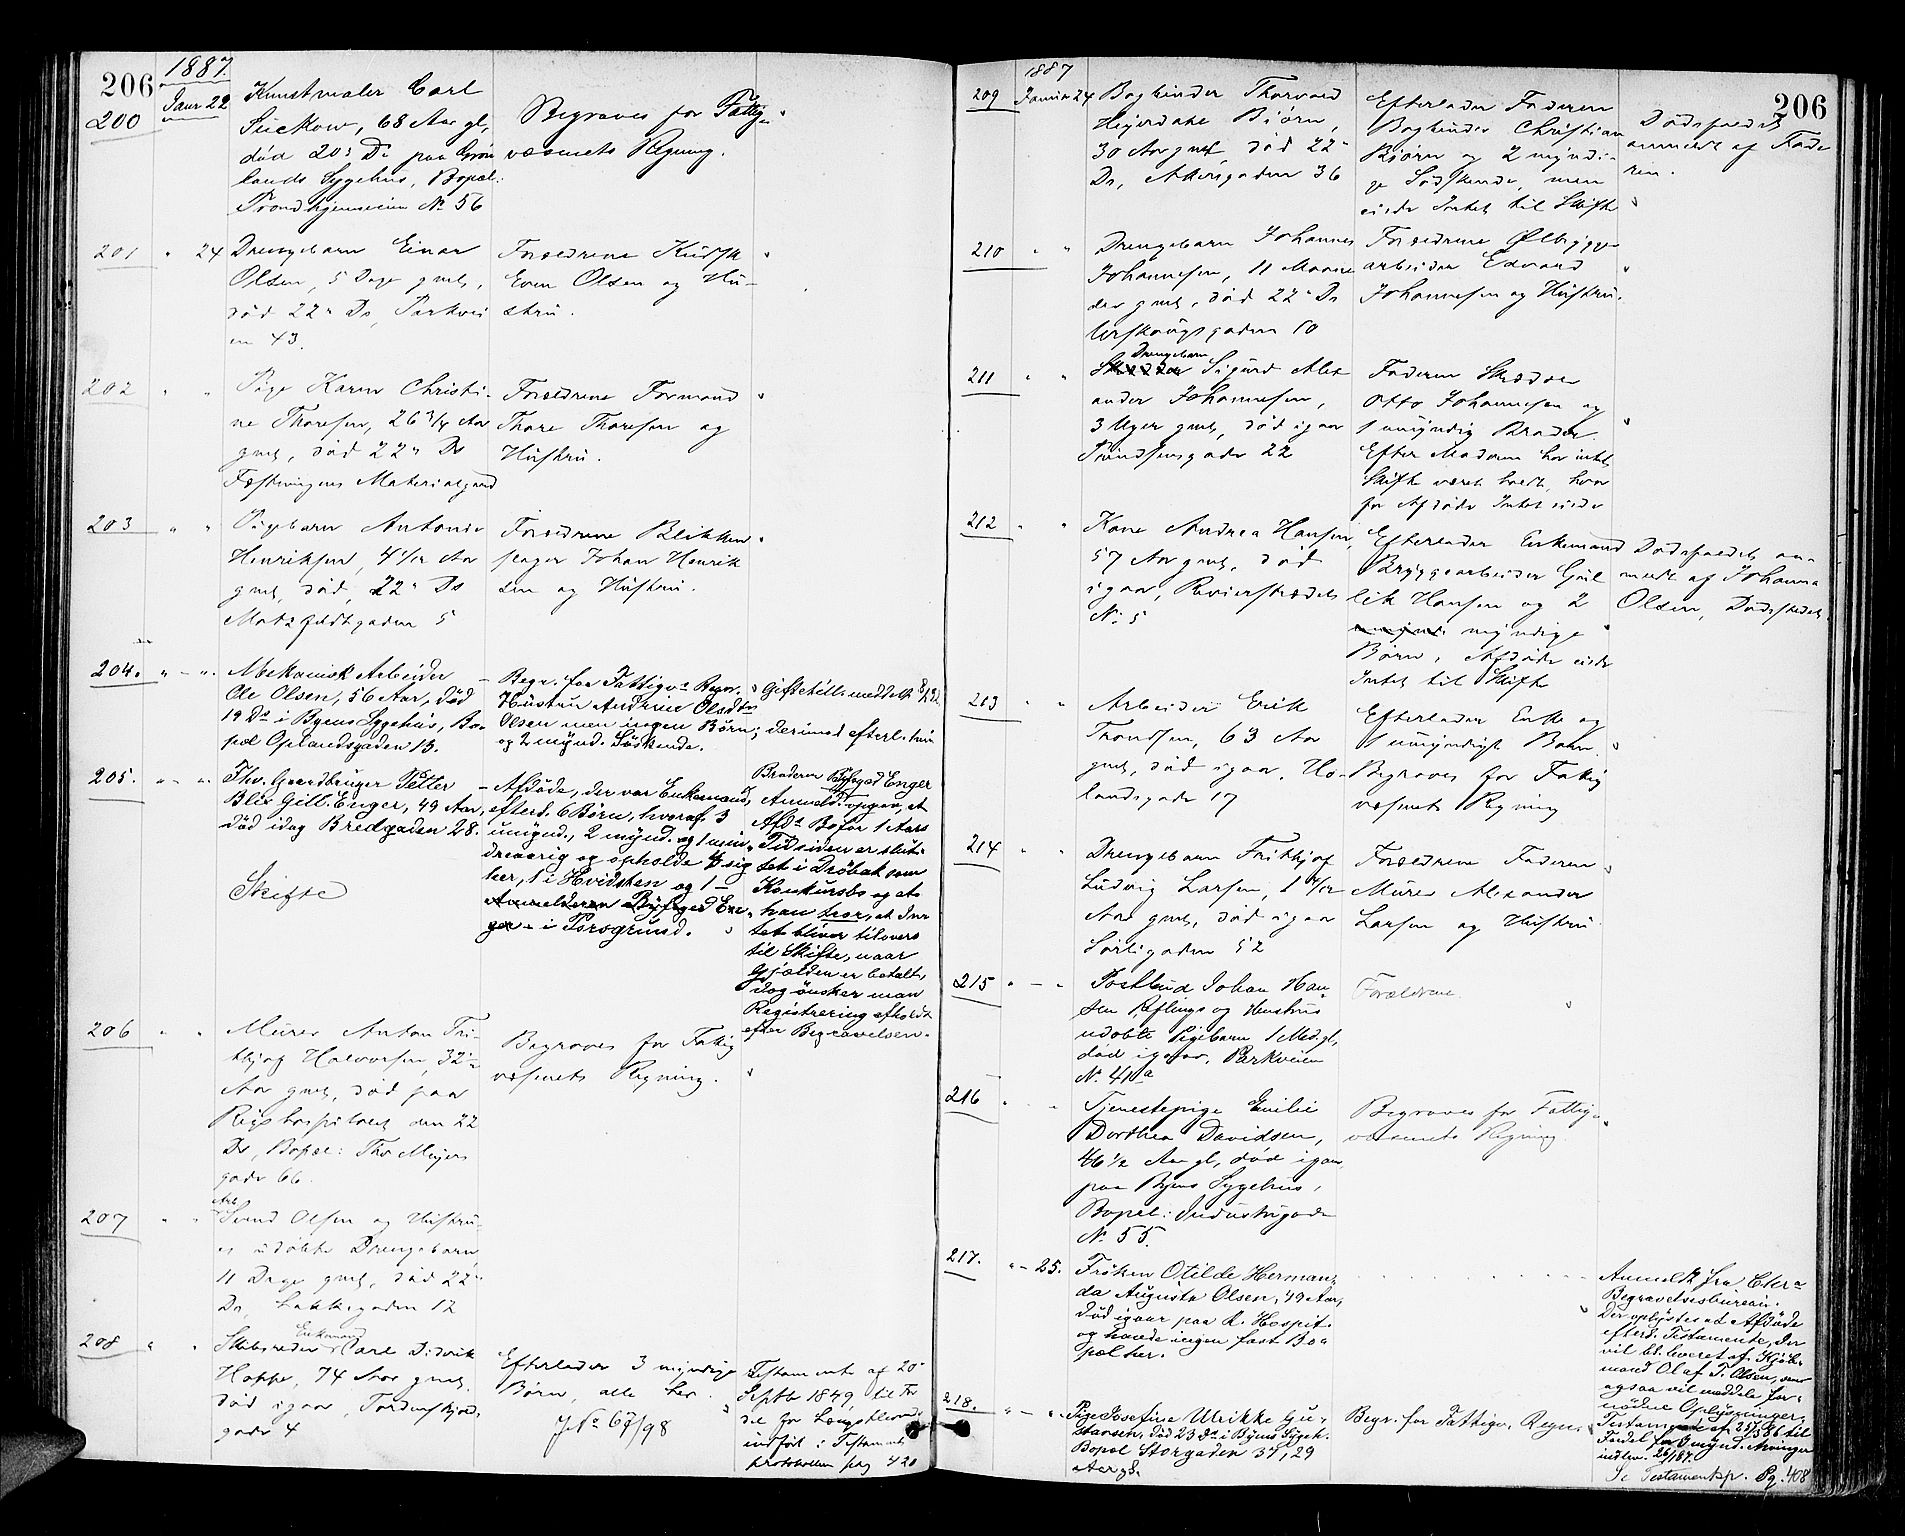 206
1887.
200
Janr 22
Kunstmaler Carl
Suckow, 68 Aar gl,
død 20s Ds paa Grøn
lands Sygehus, Bopæl:
Trondhjemsveien No 56
Begraves for Fattig-
væsenets Regning.
201 " 24
Drengebarn Einar
Olsen, 5 Dage gml,
død 22n Ds, Parkvei
en 43.
Forældrene Kudsk
Even Olsen og Hu-
stru.
202 " "
Pige Karen Christi-
ne Thoresen, 26 3/4 Aar
gml, død 22n Ds
Fæstningens Materialgaard
Forældrene Formand
Thore Thoresen og
Hustru.
203 " "
Pigebarn Antonie
Henriksen, 4 1/12 Aar
gml, død, 22n Ds
Motzfeldtgaden 5
Forældrene Blikken
slager Johan Henrik
sen og Hustru.
204. " - ".
Mekanisk Arbeider
Ole Olsen, 56 Aar, død
19 Ds i Byens Sygehus, Bo-
pæl Oplandsgaden 13.
Begr. for Fattigvs Regn.
Hustru Andrine Olsdtr
Olsen men ingen Børn; derimod efterl. han
og 2 mynd. Södskende.
205. " - "
Fhv. Gaardbruger Petter
Blix Gill. Enger, 49 Aar,
død idag Bredgaden 28.
Skifte
Afdøde, der var Enkemand,
efterl. 6 Børn, hvoraf 3
umynd., 2 mynd. og 1 min-
dreaarig og opholde 4 sig
her, 1 i Hvidsten og 1 -
Anmelderen Byfoged En-
ger - i Porsgrund.
Broderen Byfoged Enger
Anmeld. opgav, at
Afds Bo for 1 Aars
Tid siden er slut-
tet i Drøbak som
Konkursbo og at
han tror, at In-
tet bliver tilovers
til Skifte, naar
Gjælden er betalt,
dog ønsker man
Registrering afholdt
efter Begravelsen.
206 " "
Murer Anton Fri-
thjof Halvorsen, 32
Aar gml, død paa
Rigshospitalet den 22
Ds, Bopæl: Thv Meyers
gade 66.
Begraves for Fattig
væsenets Regning.
207 " "
Arb
Svend Olsen og Hustru-
es udøbte Drengebarn
11 Dage gml, død 22n
Ds, Lakkegaden 12
208 " "
Enkemand
Skibsreder Carl Diderik
Hoppe, 74 Aar gml,
død igaar, Tordenskjolds
gade 4
Efterlader 3 myndige
Børn, alle her.
J No 67/98
Testamente af 20
Septbr 1849, til For
del for Længstlevende
indført i Testaments
protokollen pag 420
206
1887
209 Januar 24
Bogbinder Thorvald
Hejerdahl Bjørn,
30 Aar gml, død 22n
Ds, Akersgaden 36
Efterlader Faderen
Bogbinder Christian
Bjørn og 2 myndi-
ge Sødskende, men
eiede Intet til Skifte
Dødsfaldet
anmeldt af Fade
ren.
210 " "
Drengebarn Johannes
Johannesen, 11 Maane
der gml, død 22n Ds
10
Forældrene Ølbrygge
arbeider Edvard
Johannesen og Hustru.
211 " "
Drengebarn
Skrædder Sigurd Alex
ander Johannesen,
3 Uger gml, død igaar
22
Faderen Skrædder
Otto Johannesen og
1 umyndig Broder.
Efter Moderen har intet
Skifte været holdt, hvor
for Afdøde Intet eiede
212 " "
Kone Andrea Hansen,
57 Aar gml, død
igaar, Revierstrædet
No 5
Efterlader Enkemand
Bryggearbeider Gul
lik Hansen og 2
umynd. myndige
Børn, Afdøde eiede
Intet til Skifte
Dødsfaldet an-
meldt af Johanna
Olsen, Dødsstedet
213 " "
Arbeider Erik
Trondsen, 63 Aar
gml, død igaar, Ho-
landsgade 17
Efterlader Enke og
1 umyndigt Barn.
Begraves for Fattig
væsenets Regning
214 " "
Drengebarn Frithjof
Ludvig Larsen, 1 /12
Aar gml, død igaar
Sørligaden 52
Forældrene Faderen
Murer Alexander
Larsen og Hustru.
215 " - "
Postbud Johan Han-
sen Reflings og Hustrus
udøbte Pigebarn 1 Md. gl,
død igaar, Parkveien
No 41a
Forældrene.
216 " "
Tjenestepige Emilie
Dorthea Davidsen,
46 1/2 Aar gl, død igaar
paa Byens Sygehus,
Bopæl: Industrigade
No 55.
Begraves for Fattig-
væsenets Regning.
217. " - 25.
Frøken Otilde Herman-
da Augusta Olsen, 49 Aar,
død igaar paa R. Hospit.
og havde ingen fast Bo-
pæl her.
Anmeldt fra
Begravelsesbureau.
Der oplystes at Afdøde
efterl. Testamente, der
vil bl. leveret af Kjøb-
mand Olaf T. Olsen, som
ogsaa vil meddele for-
nødne Oplysninger.
Testament af 25/5 86 til
Fordel for 3 mynd. Arvinger
indlev. 26/1 87.
Se Testamentspr. Pg. 408
218. " - ".
Pige Josefine Ulrikke Gu-
stavsen, død 23 Ds i Byens Sygeh.
Bopæl Storgaden 37, 29
Aar gl.
Begr. for Fattigv. Regn.